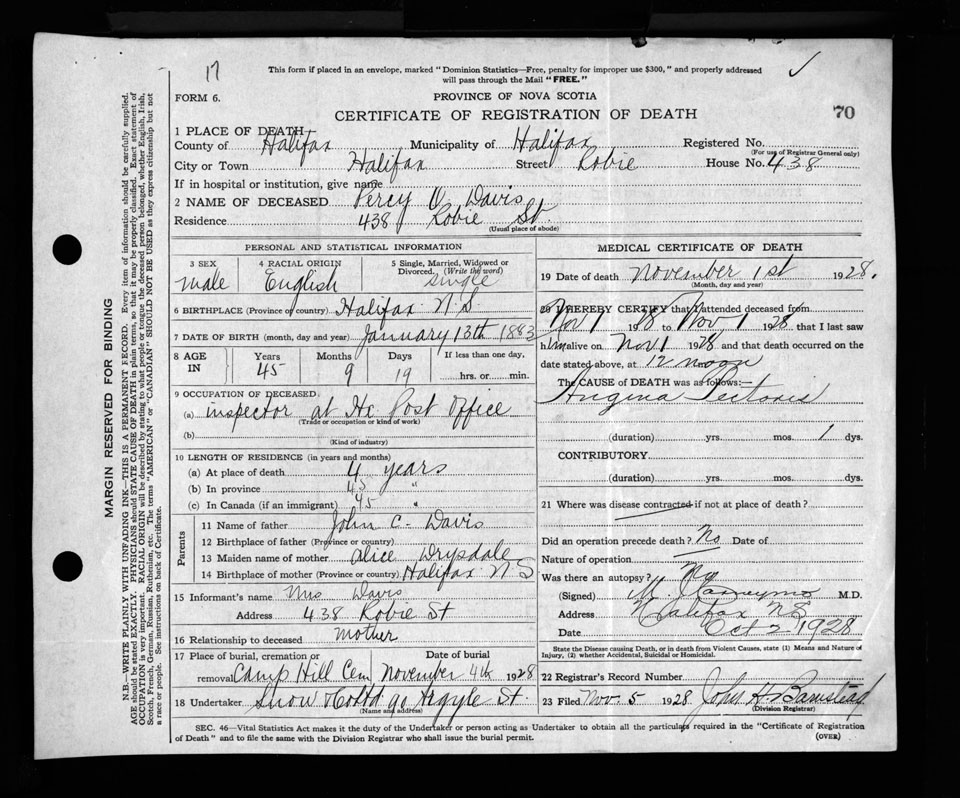 17
This form if placed in an envelope, marked "Dominion Statistics—Free, penalty for improper use $300," and properly addressed
will pass through the Mail "FREE."
FORM 6.
PROVINCE OF NOVA SCOTIA
CERTIFICATE OF REGISTRATION OF DEATH
70
1 PLACE OF DEATH
County of Halifax Municipality of Halifax Registered No.
(For use of Registrar General only)
City or Town Halifax Street Robie House No. 438
If in hospital or institution, give name
2 NAME OF DECEASED Percy O Davis
Residence 438 Robie St.
(Usual place of abode)
PERSONAL AND STATISTICAL INFORMATION
3 SEX 4 RACIAL ORIGIN 5 Single, Married, Widowed or
Divorced. (Write the word)
male English single
6 BIRTHPLACE (Province or country) Halifax N.S.
7 DATE OF BIRTH (month, day and year) January 13th 1883
8 AGE IN Years Months Days If less than one day,
45 9 19 hrs. or min.
9 OCCUPATION OF DECEASED
(a) inspector at Hx Post Office
(Trade or occupation or kind of work)
(b)
(Kind of industry)
10 LENGTH OF RESIDENCE (in years and months)
(a) At place of death 4 years
(b) In province 45 "
(c) In Canada (if an immigrant) 45 "
Parents
11 Name of father John C. Davis
12 Birthplace of father (Province or country)
13 Maiden name of mother Alice Drysdale
14 Birthplace of mother (Province or country) Halifax N S
15 Informant's name Mrs Davis
Address 438 Robie St
16 Relationship to deceased mother
17 Place of burial, cremation or Date of burial
removal Camp Hill Cem November 4th 1928
18 Undertaker Snow & Co Ltd 90 Argyle St.
(Name and address)
MEDICAL CERTIFICATE OF DEATH
19 Date of death November 1st 1928.
(Month, day and year)
20 I HEREBY CERTIFY that I attended deceased from
Nov 1 1928 to Nov 1 1928 that I last saw
him alive on Nov 1 1928 and that death occurred on the
date stated above, at 12 noon
The CAUSE OF DEATH was as follows:—
Angina Pectoris
(duration) yrs. mos. 1 dys.
CONTRIBUTORY
(duration) yrs. mos. dys.
21 Where was disease contracted if not at place of death?
Did an operation precede death? No Date of
Nature of operation
Was there an autopsy? No
(Signed) M. M.D.
Address Halifax NS
Date Oct 2 1928
State the Disease causing Death, or in death from Violent Causes, state (1) Means and Nature of
Injury, (2) whether Accidental, Suicidal or Homicidal.
22 Registrar's Record Number
23 Filed Nov. 5 1928 John H Barnstead
(Division Registrar)
SEC. 46—Vital Statistics Act makes it the duty of the Undertaker or person acting as Undertaker to obtain all the particulars required in the "Certificate of Registration
of Death" and to file the same with the Division Registrar who shall issue the burial permit.
(OVER)
MARGIN RESERVED FOR BINDING
N.B.—WRITE PLAINLY WITH UNFADING INK—THIS IS A PERMANENT RECORD. Every item of information should be carefully supplied.
AGE should be stated EXACTLY. PHYSICIANS should STATE CAUSE OF DEATH in plain terms, so that it may be properly classified. Exact statement of
OCCUPATION is very important. RACIAL ORIGIN will be described by stating to what people or tongue the deceased person belonged, whether English, Irish,
Scotch, French, German, Russian, Ruthenian, etc. The terms "AMERICAN" or "CANADIAN" SHOULD NOT BE USED as they express citizenship but not
a race or people. See instructions on back of Certificate.